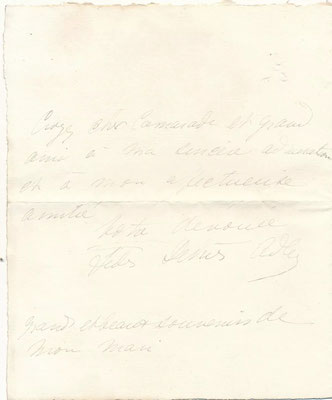 Croyez cher Camarade et grand
ami à ma sincère admiration
et à mon affectueuse
amitié
Votre dévouée
grands et beaux souvenirs de
mon mari